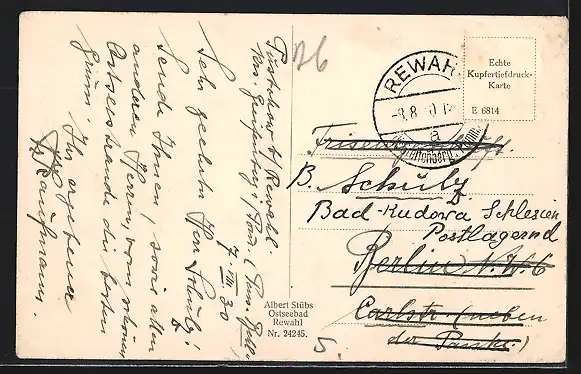 Pustchow b/ Rewahl.
Krs. Greifenberg i/ Pom. ( Pens. Bell.
7. VIII. 30
Sehr geehrter Herr Schulz!
Sende Ihnen, sowie allen
anderen Herren, vom schönen
Ostseestrande die besten
Grüsse.
Ihr ergebener
Kaufmann.
26
REWAHL
-8.8 0 12
a
(Greifenberg, Pom.)
Echte
Kupfertiefdruck-
Karte
E 6814
B. Schulz
Bad-Kudowa Schlesien
Postlagernd
Berlin N.W. 6
Carlstr. (neben
der Panke.)
Albert Stübs
Ostseebad
Rewahl
Nr. 24245.
5.